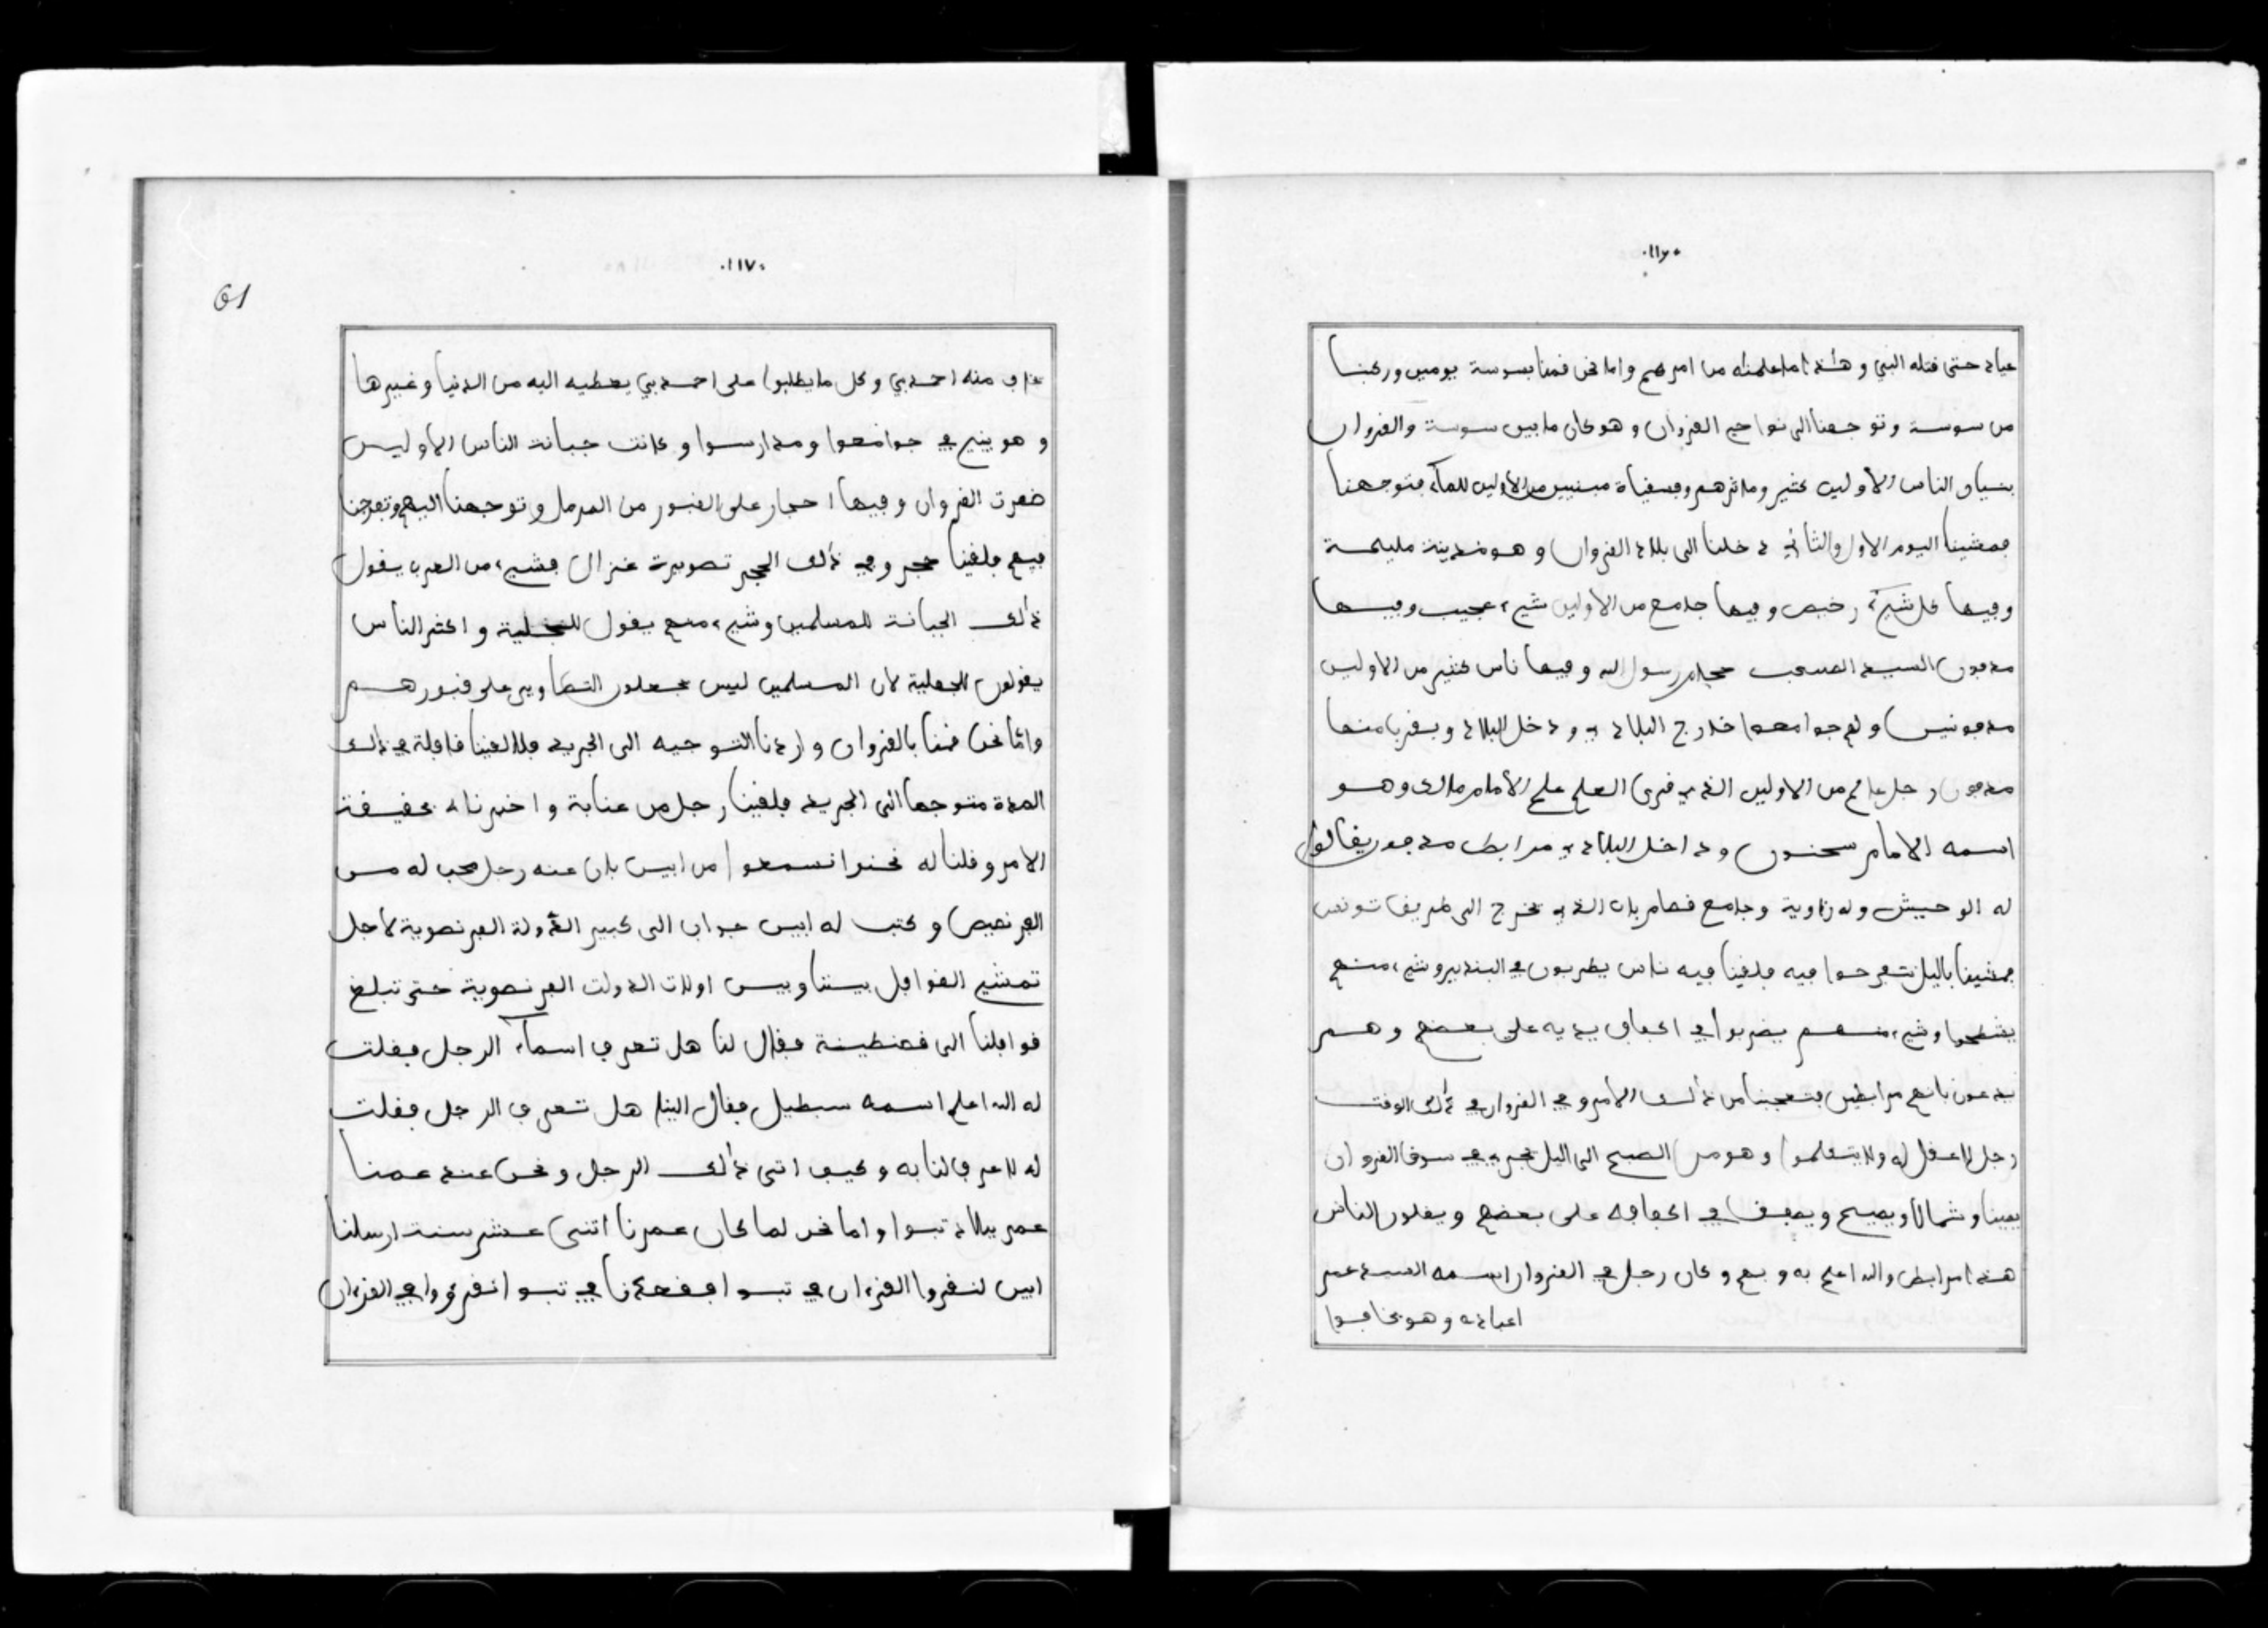 ٠١١٦٠
عباد حتى قتله النبي وهذا ما علمناه من امرهم واما نحن قمنا بسوسة يومين وركبنا
من سوسة وتوجهنا الى نواحي القروان وهو كان ما بين سوسة والقروان
بنيان الناس الاولين كثير وماثرهم وفسقياة مبنيين من الاولين للمآء فتوجهنا
فمشينا اليوم الاول والثاني دخلنا الى بلاد القروان وهو مدينة مليحة
وفيها كل شيء رخيص وفيها جامع من الاولين شيء عجيب وفيها
مدفون السيد الصحب رسول الله وفيها ناس كثير من الاولين
مدفونين ولهم جوامعوا خارج البلاد ودخل البلاد وبقربا منها
مدفون رجل عالم من الاولين الذي قرى العلم علم الامام مالك وهو
اسمه الامام سحنون وداخل البلاد مرابط مدفون يقالوا
له الوحيش وله زاوية وجامع قصام باب الذي تخرج الى طريق تونس
فمشينا باليل نتفرجوا فيه فلقينا فيه ناس يطربون في البندير وشيء منهم
يشطحوا وشيء منهم يضربوا في اكفاف يديه على بعضهم وهم
يدعون بانهم مرابطين فتعجبنا من ذالك الامر وفي القروان في ذالك الوقت
رجل لا عقل له ولا يتكلموا وهو من الصبح الى اليل يجري في سوق القروان
يمينا وشمالا ويصيح ويصفف في اكفافه على بعضهم ويقلون الناس
هذا مرابط والله اعلم به وبهم وكان رجل في القروان اسمه السيد عمر
اعباده وهو يخافوا
٠١١٧٠
61
خاف منه احمد بي وكل ما يطلبوا على احمد بي يعطيه اليه من الدنيا وغيرها
وهو يبني في جوامعوا ومدارسوا وكانت جبانة الناس الاولين
ضهرت القروان وفيها احجار على القبور من المرمل وتوجهنا اليهم وتفرجنا
فيهم فلقينا حجر وفي ذالك الحجر تصويرة غزال فشيء من العرب يقول
ذالك الجبانة للمسلمين وشيء منهم يقول للجهلية واكثر الناس
يقولون للجهلية لان المسلمين ليس يجعلون التصاوير على قبورهم
واما نحن قمنا بالقروان واردنا التوجيه الى الجريد فلا لقينا قافلة في ذالك
المدة متوجها الى الجريد فلقينا رجل من عنابة واخبرناه بحقيقة
الامر وقلنا له نحنوا نسمعوا من ابيس بان عنه رجل محب له من
الفرنصيص وكتب له ابيس جواب الى كبير الدولة الفرنصوية لاجل
تمشي القوافل بيننا وبيس اولات الدولت الفرنصوية حتى تبلغ
قوافلنا الى قصنطينة فقال لنا هل تعرف اسمآء الرجل فقلت
له الله اعلم اسمه سبطيل فقال الينا هل تعرف الرجل فقلت
له لا عرف لنا به وكيف اتى ذالك الرجل ونحن عند عمنا
عمر ببلاد تبوا واما نحن لما كان عمرنا اتنى عشر سنت ارسلنا
ابيس لنقروا القرءان في تبوا فقعدنا في تبوا نقروا في القرءان